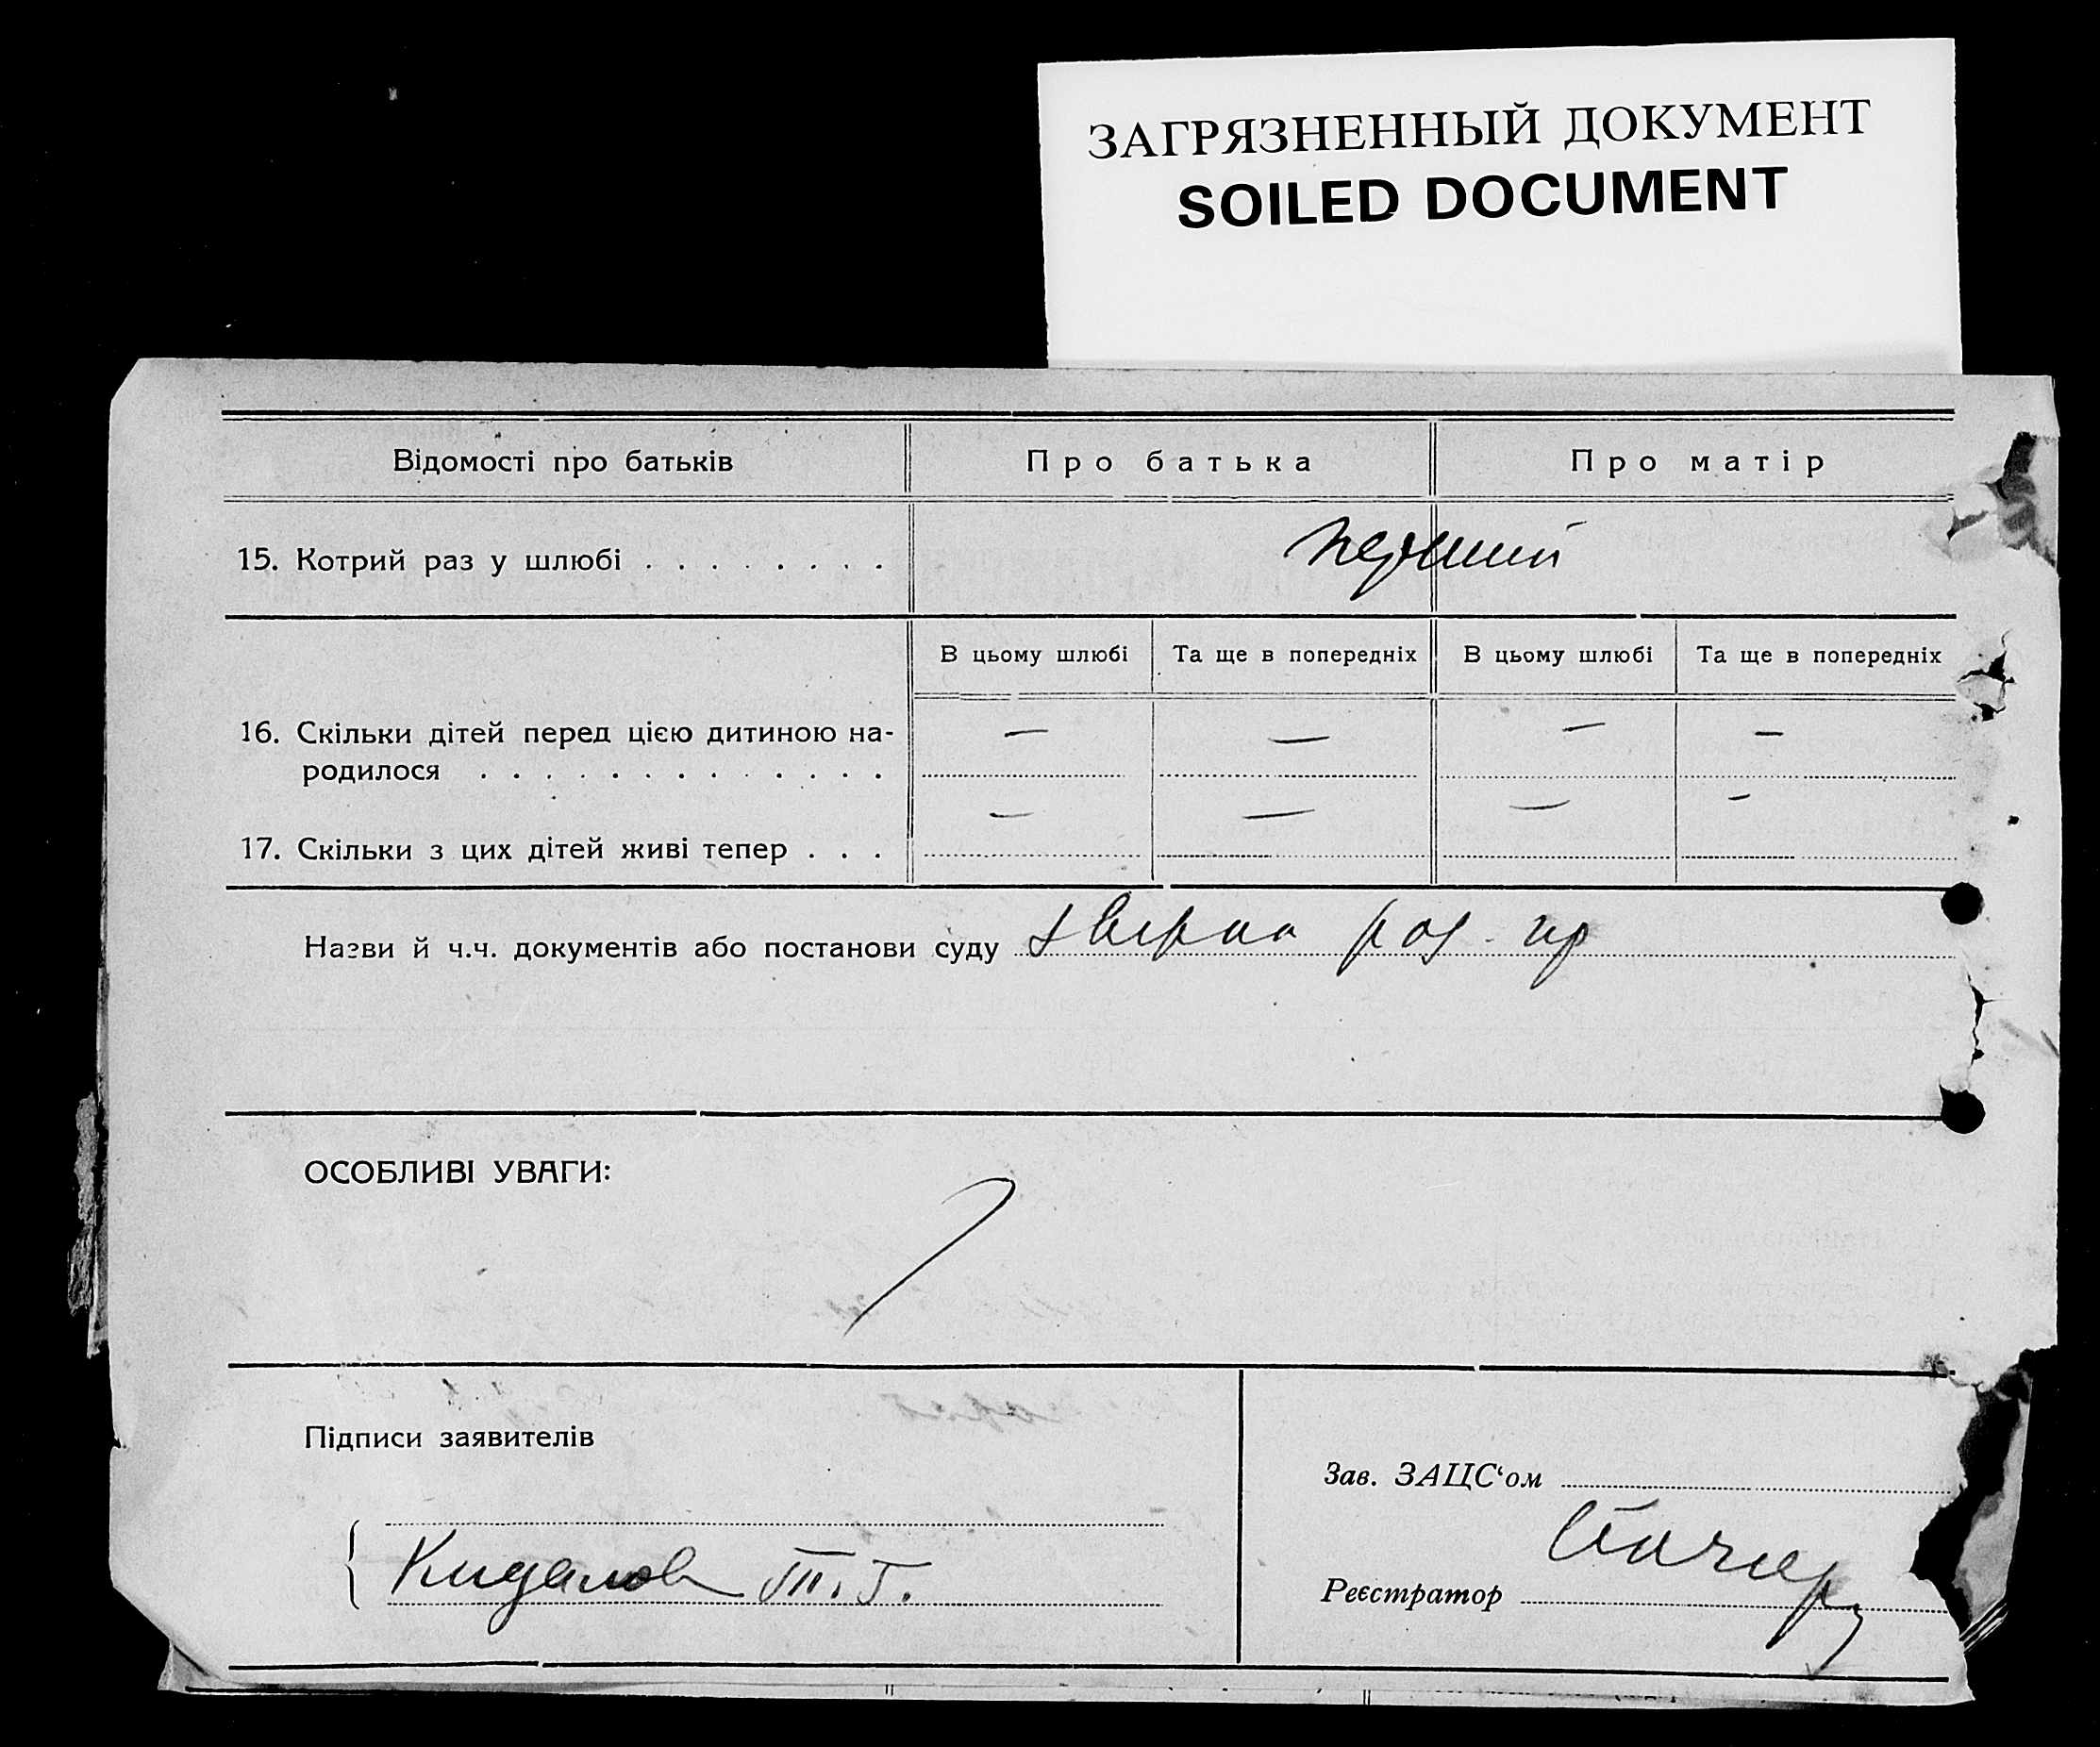 ЗАГРЯЗНЕННЫЙ ДОКУМЕНТ
SOILED DOCUMENT
Відомості про батьків Про батька Про матір
15. Котрий раз у шлюбі . . . . . . . . перший
В цьому шлюбі Та ще в попередніх В цьому шлюбі Та ще в попередніх
16. Скільки дітей перед цією дитиною на- — — — —
родилося . . . . . . . . . . . . .
17. Скільки з цих дітей живі тепер . . . — — — —
Назви й ч.ч. документів або постанови суду
ОСОБЛИВІ УВАГИ:
Підписи заявителів
Зав. ЗАЦС‘ом
Кидалов
Реєстратор